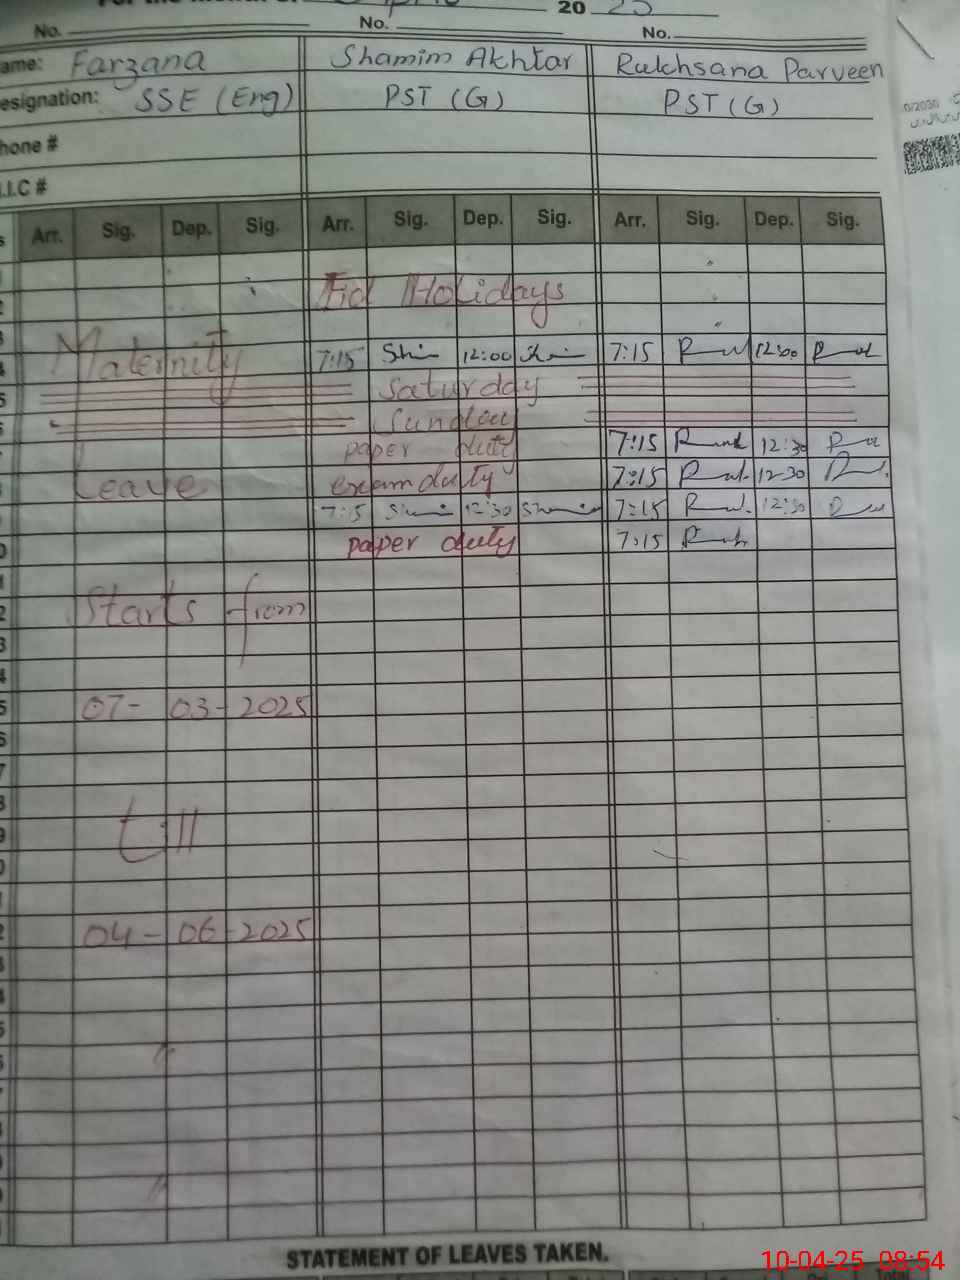 20 25
No. No. No.
ame: Farzana Shamim Akhtar Rukhsana Parveen
esignation: SSE (Eng) PST (G) PST (G)
hone #
.I.C #
Arr. Sig. Dep. Sig. Arr. Sig. Dep. Sig. Arr. Sig. Dep. Sig.
Eid Holidays
Maternity 7:15 12:00 7:15 12:00
Saturday
Sunday
paper duty 7:15 12:30
Leave exam duty 7:15 12-30
7:15 12:30 7:15 12:30
paper duty 7:15
Starts from
07- 03- 2025
till
04- 06- 2025
STATEMENT OF LEAVES TAKEN.
10-04-25 08:54